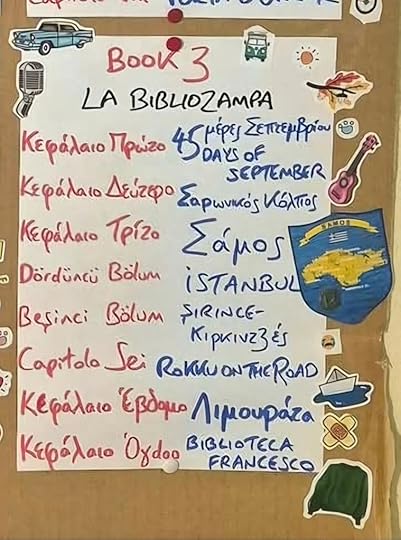 Book 3
LA BIBLIOZAMPA
Κεφάλαιο Πρώτο 45 μέρες Σεπτεμβρίου
DAYS OF
SEPTEMBER
Κεφάλαιο Δεύτερο Σαρωνικός Κόλπος
Κεφάλαιο Τρίτο Σάμος
SAMOS
Dördüncü Bölüm İSTANBUL
Beşinci Bölüm ŞIRINCE-
Κιρκιντζές
Capitolo Sei ROKKU ON THE ROAD
Κεφάλαιο Έβδομο Λιμουράτα
Κεφάλαιο Όγδοο BIBLIOTECA
FRANCESCO